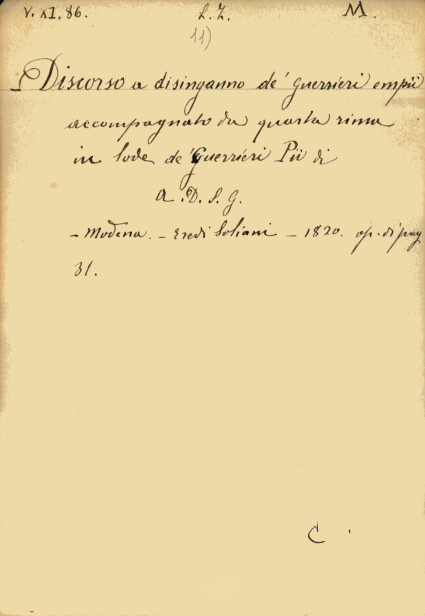 V. XI. 86. L. Z. M.
11)
Discorso a disinganno de' Guerrieri empii
accompagnato da quarta rima
in lode de' Guerrieri Pii di
A. D. S. G.
- Modena. - Eredi Soliani - 1820. op. di pag
31.
C